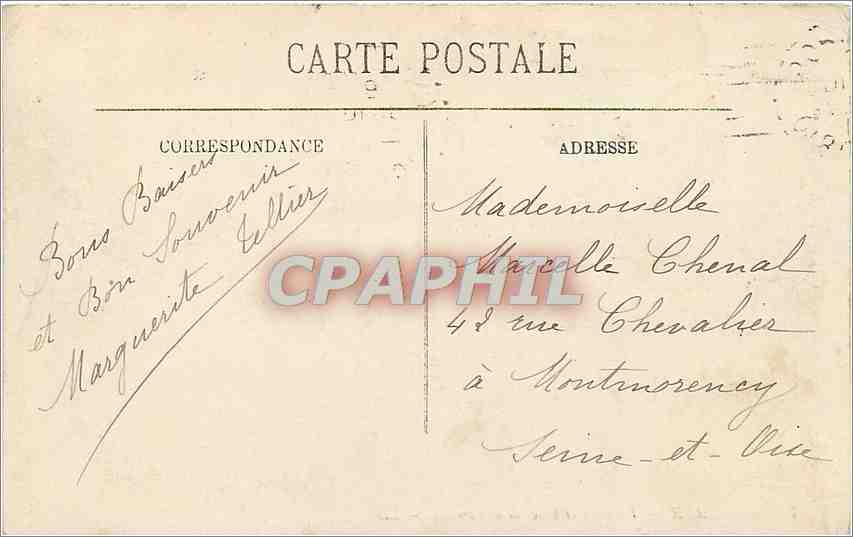 CARTE POSTALE
CORRESPONDANCE
Bons Baisers
et Bon Souvenir
Marguerite Tellier
ADRESSE
Mademoiselle
Marcelle Chenal
42 rue Chevalier
à Montmorency
Seine-et-Oise
CPAPHIL